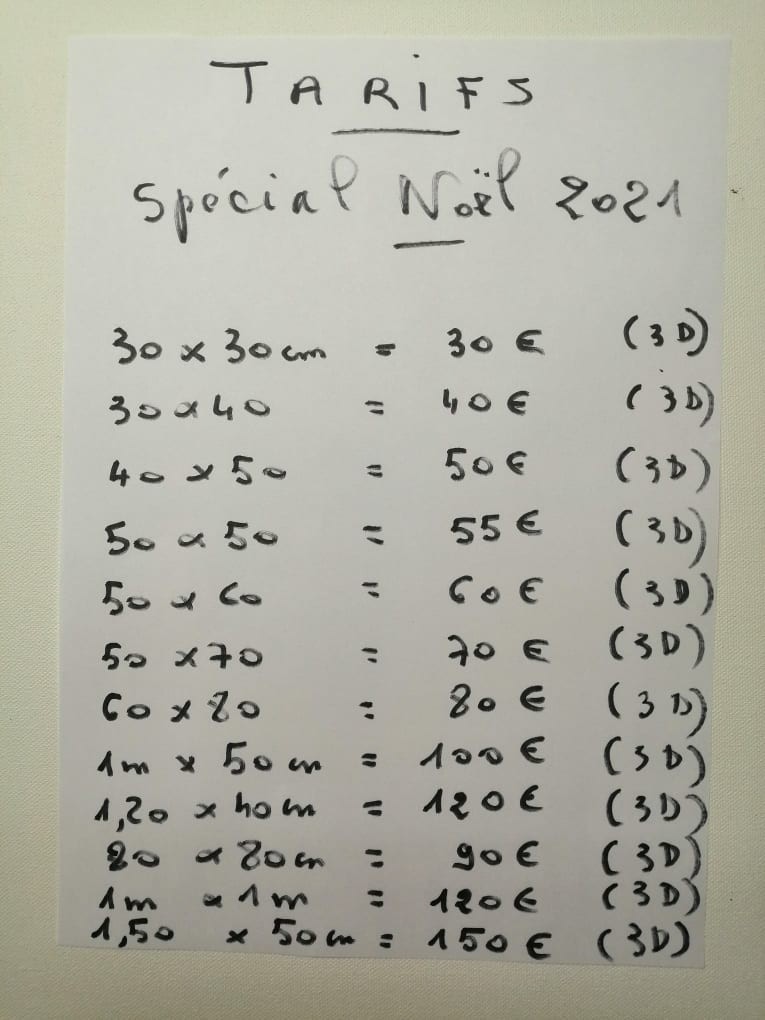 TARIFS
Spécial Noël 2021
30 x 30 cm = 30 € (3D)
30 x 40 = 40 € (3D)
40 x 50 = 50 € (3D)
50 x 50 = 55 € (3D)
50 x 60 = 60 € (3D)
50 x 70 = 70 € (3D)
60 x 80 = 80 € (3D)
1m x 50 cm = 100 € (3D)
1,20 x 40 cm = 120 € (3D)
80 x 80 cm = 90 € (3D)
1m x 1m = 120 € (3D)
1,50 x 50 cm = 150 € (3D)